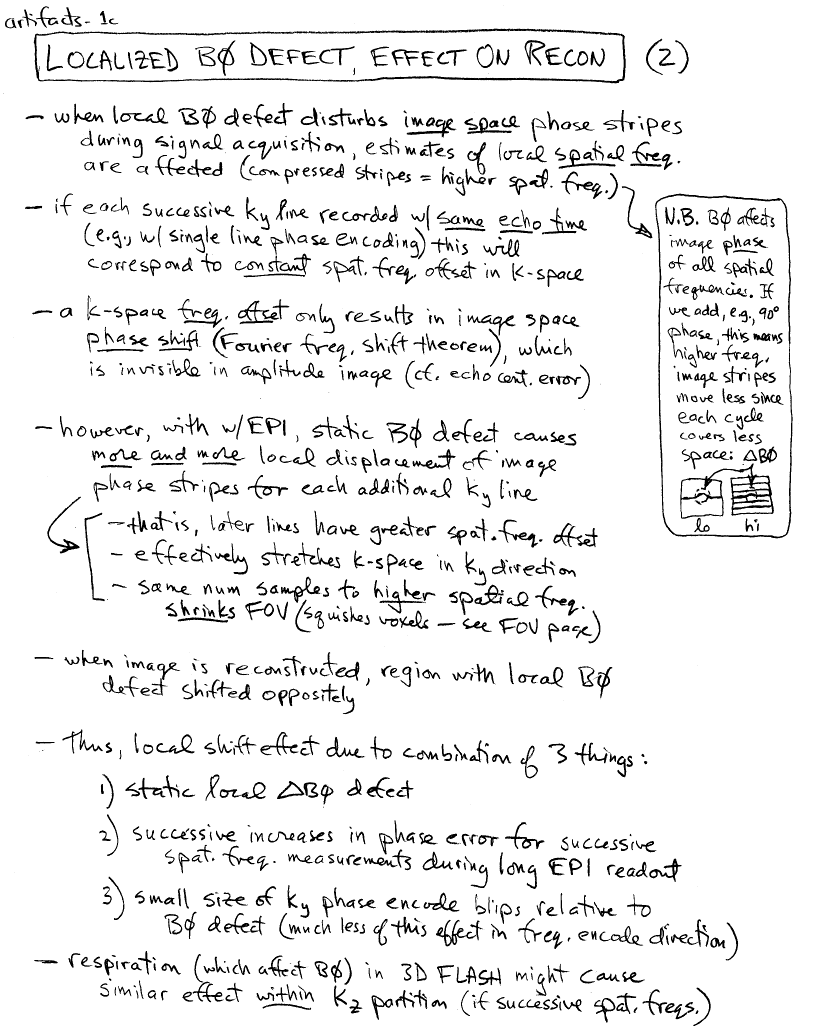 artifacts-1c
LOCALIZED BØ DEFECT, EFFECT ON RECON (2)
– when local BØ defect disturbs image space phase stripes
during signal acquisition, estimates of local spatial freq.
are affected (compressed stripes = higher spat. freq.)
– if each successive ky line recorded w/same echo time
(e.g., w/single line phase encoding) this will
correspond to constant spat. freq. offset in k-space
– a k-space freq. offset only results in image space
phase shift (Fourier freq. shift theorem), which
is invisible in amplitude image (cf. echo cent. error)
– however, with w/EPI, static BØ defect causes
more and more local displacement of image
phase stripes for each additional ky line
– that is, later lines have greater spat. freq. offset
– effectively stretches k-space in ky direction
– same num samples to higher spatial freq.
shrinks FOV (squishes voxels – see FOV page)
– when image is reconstructed, region with local BØ
defect shifted oppositely
– Thus, local shift effect due to combination of 3 things:
1) static local ΔBØ defect
2) successive increases in phase error for successive
spat. freq. measurements during long EPI readout
3) small size of ky phase encode blips relative to
BØ defect (much less of this effect in freq. encode direction)
– respiration (which affect BØ) in 3D FLASH might cause
similar effect within kz partition (if successive spat. freqs.)
N.B. BØ affects
image phase
of all spatial
frequencies. If
we add, e.g., 90°
phase, this means
higher freq.
image stripes
move less since
each cycle
covers less
space: ΔBØ
lo hi